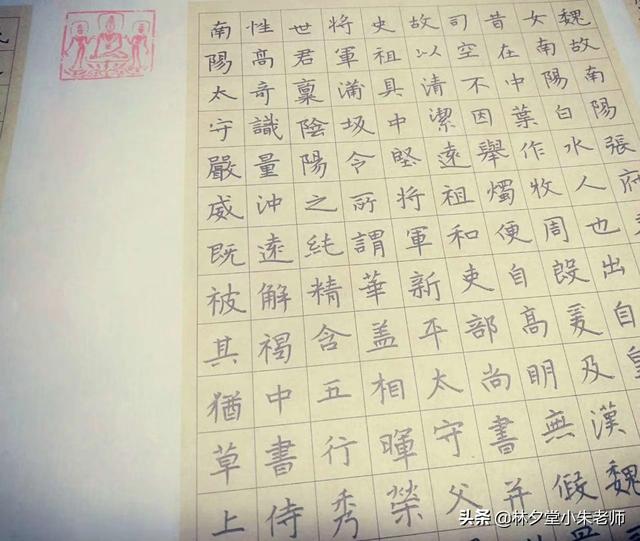 魏故南陽張府
女南陽白水人也出自皇
昔在中葉作牧周殷爰及漢魏
司空不因舉燭便自高明無假
故以清潔遠祖和吏部尚書并
史祖具中堅將軍新平太守父
將軍蒲坂令所謂華盖相暉榮
世君稟陰陽之純精含五行秀
性高奇識量沖遠解褐中書侍
南陽太守嚴威既被其猶草上
头条@林夕堂小朱老师